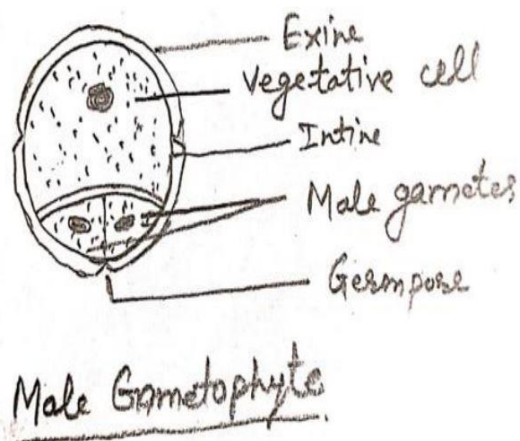 Exine
Vegetative cell
Intine
Male gametes
Germpore
Male Gametophyte